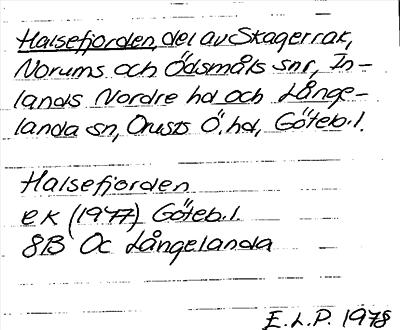 Halsefjorden, del av Skagerrak,
Norums och Ödsmåls snr, In-
lands Nordre hd och Långe-
landa sn, Orusts Ö. hd, Göteb. l.
Halsefjorden
ek (1977) Göteb. l.
8B Oc Långelanda
E.L.P. 1978